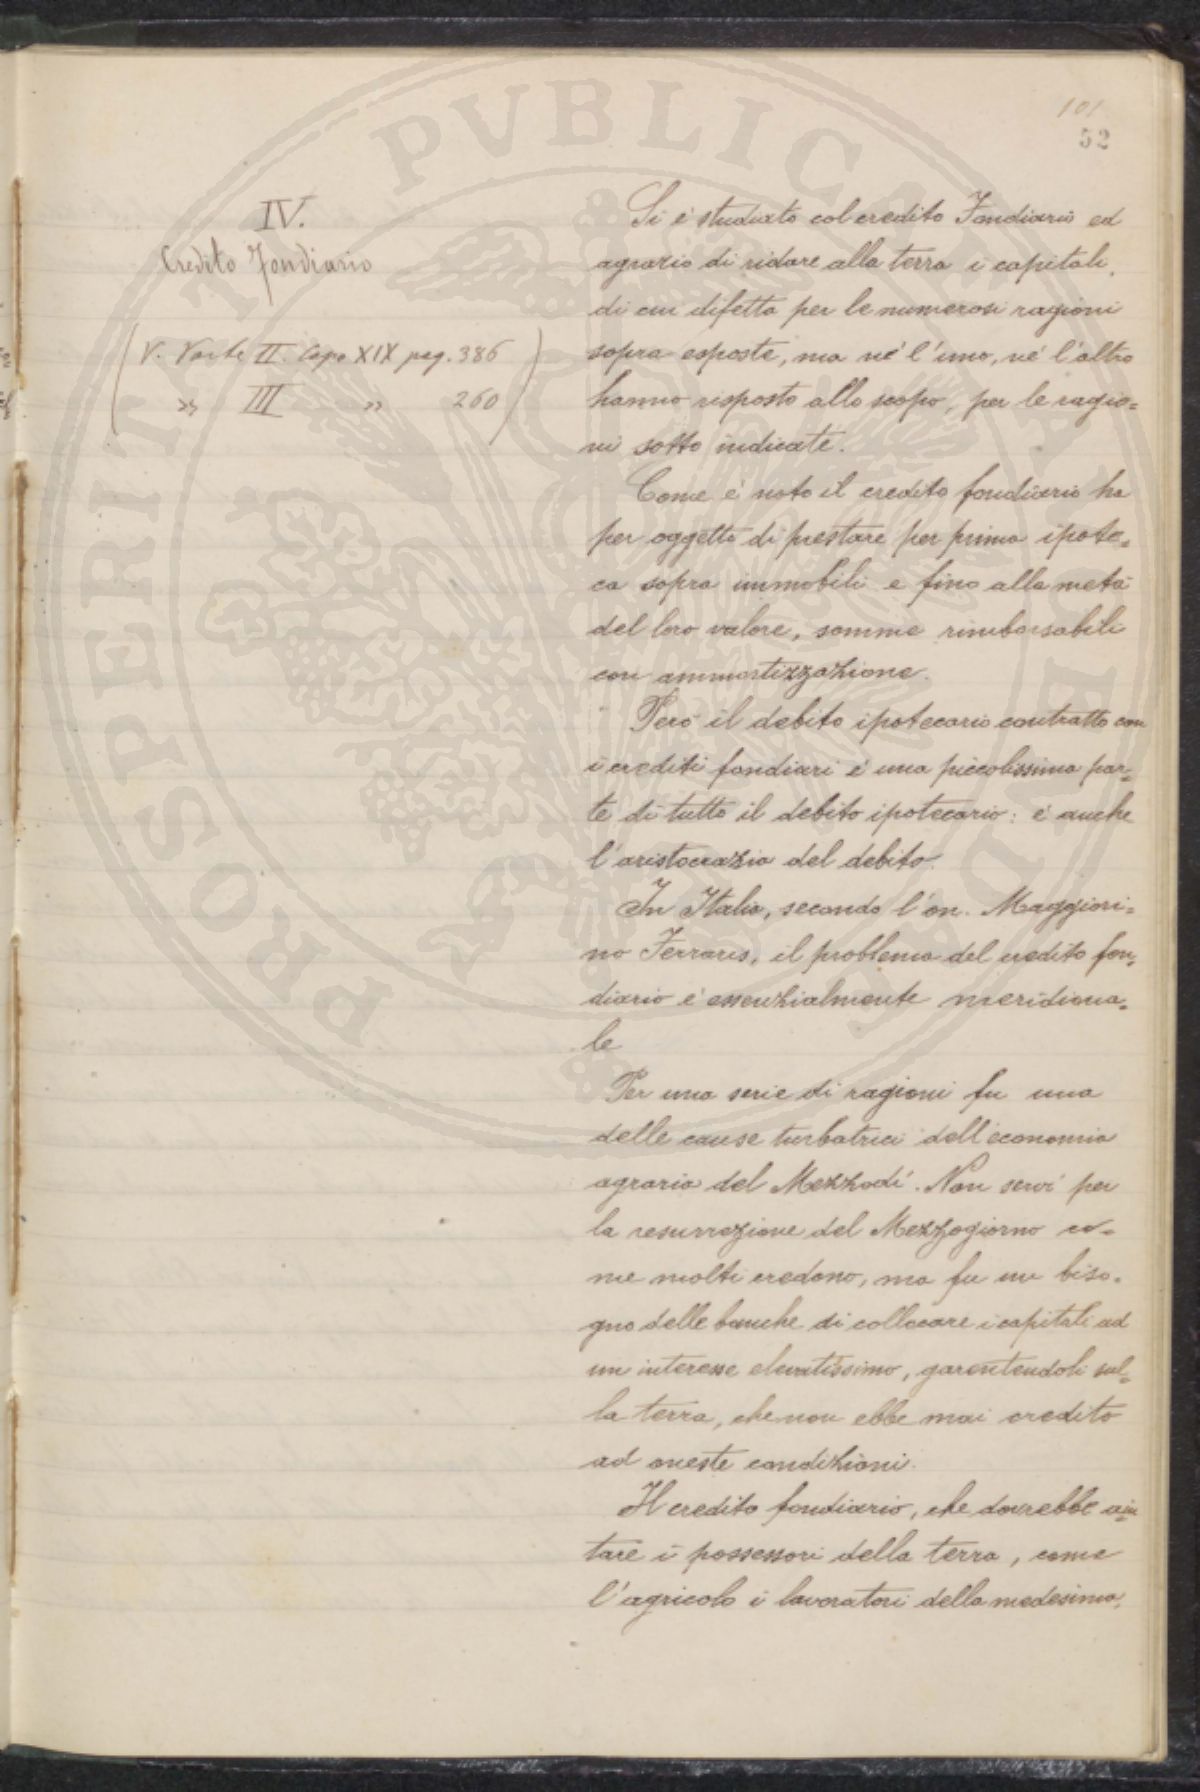 101
52
IV.
Credito Fondiario
(V. Parte II. Capo XIX pag. 386
" III " 260)
Si è studiato col credito Fondiario ed
agrario di ridare alla terra i capitali,
di cui difetta per le numerosi ragioni
sopra esposte, ma nè l'uno, nè l'altro
hanno risposto allo scopo, per le ragio=
ni sotto indicate.
Come è noto il credito fondiario ha
per oggetto di prestare per prima ipote=
ca sopra immobili e fino alla metà
del loro valore, somme rimborsabili
con ammortizzazione.
Però il debito ipotecario contratto con
i crediti fondiari è una piccolissima par=
te di tutto il debito ipotecario: è anche
l'aristocrazia del debito.
In Italia, secondo l'on. Maggiori=
no Ferraris, il problema del credito fon=
diario è essenzialmente meridiona=
le
Per una serie di ragioni fu una
delle cause turbatrici dell'economia
agraria del Mezzodì. Non servì per
la resurrezione del Mezzogiorno co=
me molti credono, ma fu un biso=
gno delle banche di collocare i capitali ad
un interesse elevatissimo, garentendoli sul=
la terra, che non ebbe mai credito
ad oneste condizioni.
Il credito fondiario, che dovrebbe aiu
tare i possessori della terra, come
l'agricolo i lavoratori della medesima,
PROSPERITATI PVBLICAE